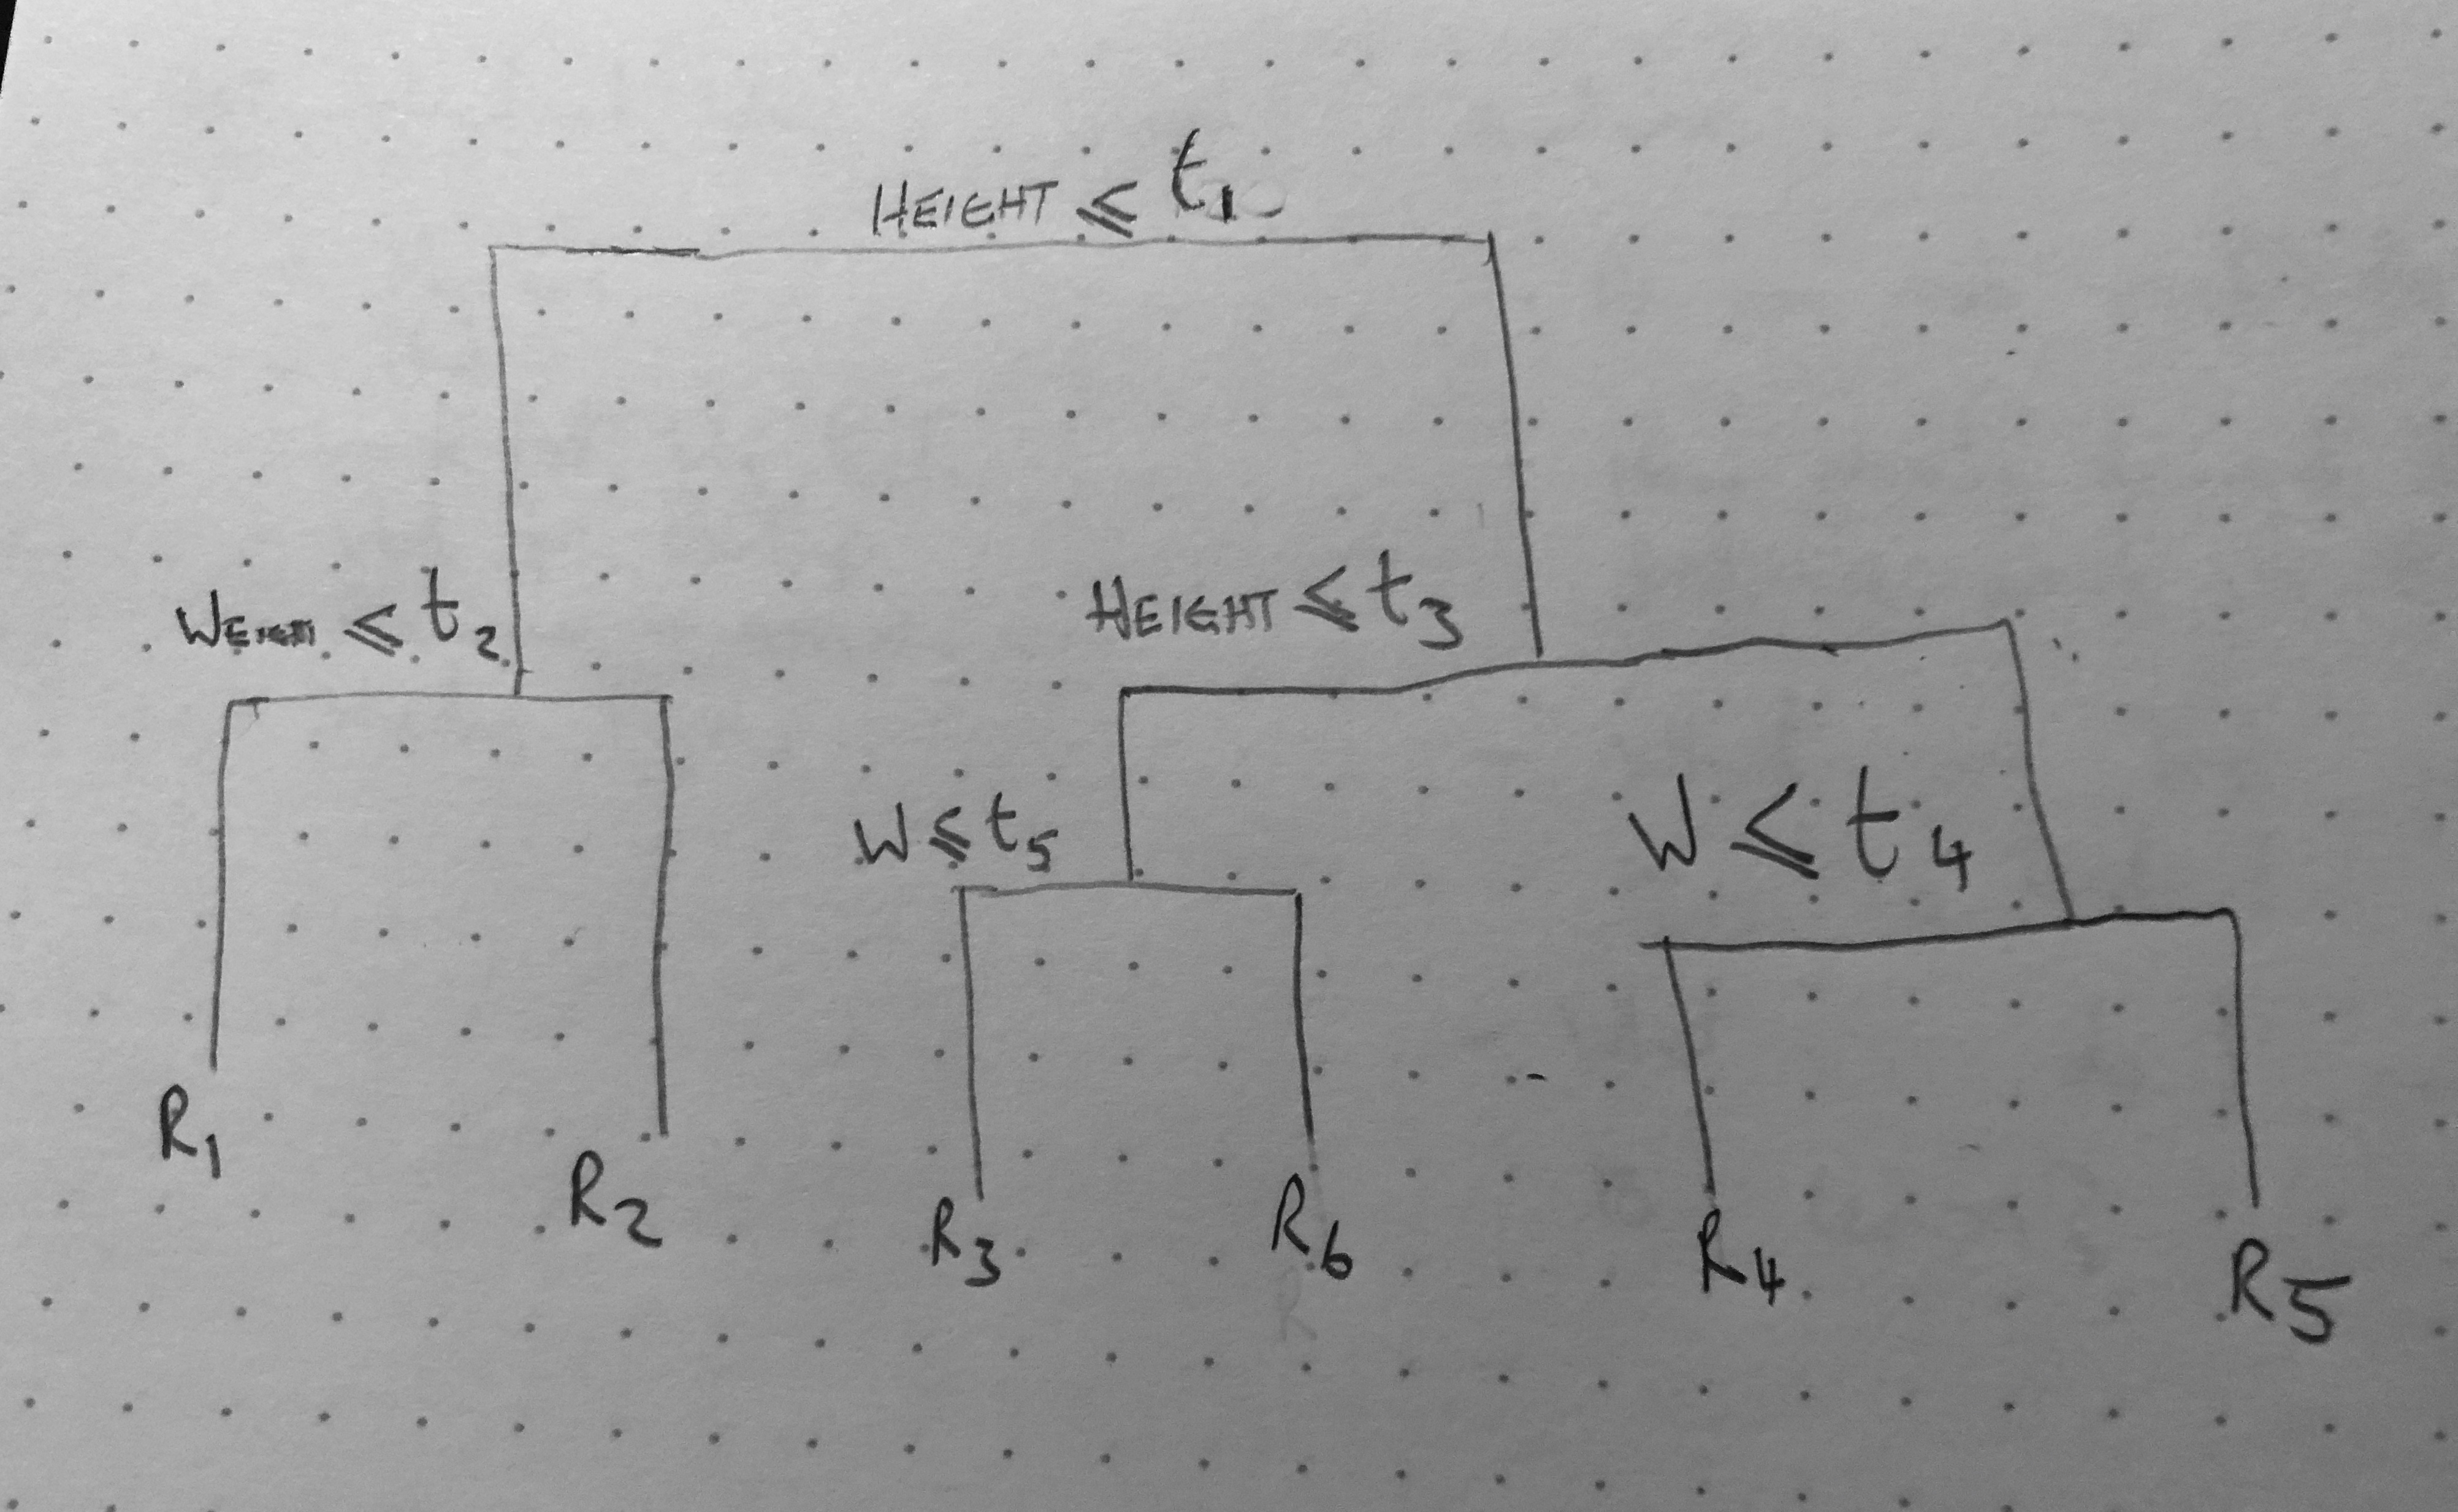 HEIGHT ≤ t1
WEIGHT ≤ t2
HEIGHT ≤ t3
W ≤ t5
W ≤ t4
R1
R2
R3
R6
R4
R5